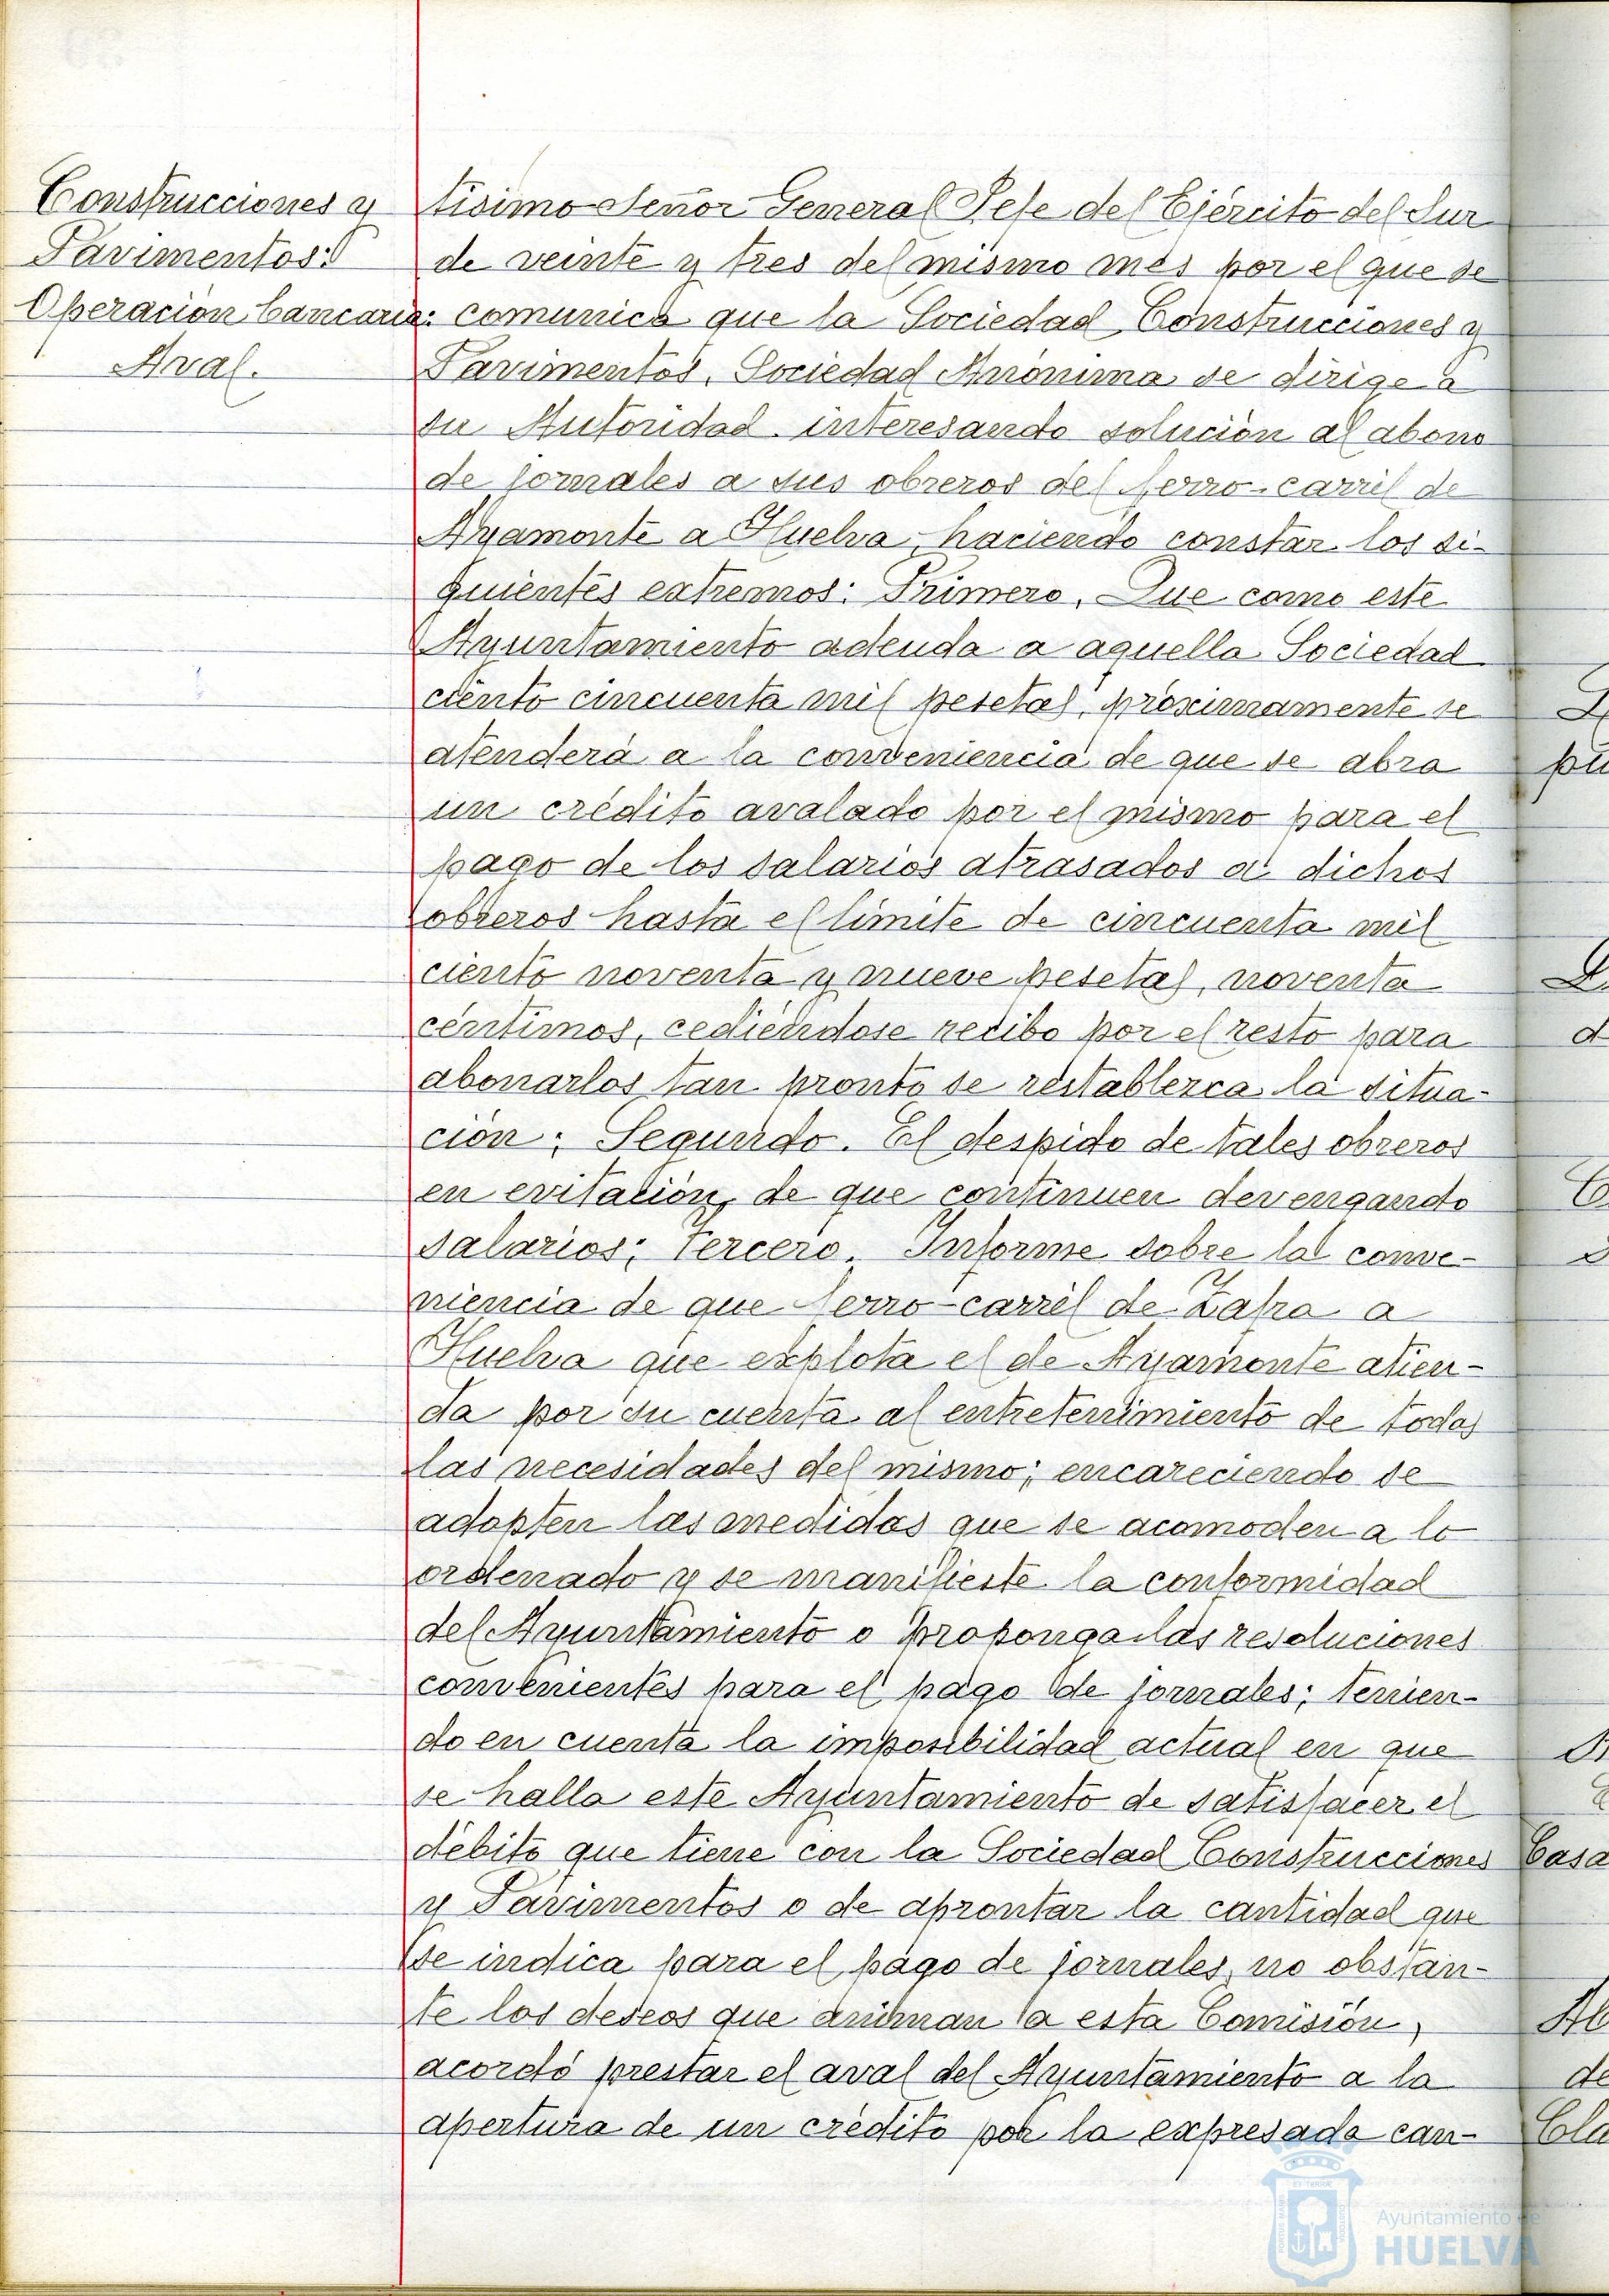 Construcciones y
Pavimentos:
Operación bancaria:
Aval.
tísimo Señor General Jefe del Ejército del Sur
de veinte y tres del mismo mes por el que se
comunica que la Sociedad Construcciones y
Pavimentos, Sociedad Anónima se dirige a
su Autoridad interesando solución al abono
de jornales a sus obreros del ferro-carril de
Ayamonte a Huelva, haciendo constar los si-
guientes extremos: Primero. Que como este
Ayuntamiento adeuda a aquella Sociedad
ciento cincuenta mil pesetas, próximamente se
atenderá a la conveniencia de que se abra
un crédito avalado por el mismo para el
pago de los salarios atrasados a dichos
obreros hasta el límite de cincuenta mil
ciento noventa y nueve pesetas, noventa
céntimos, cediéndose recibo por el resto para
abonarlos tan pronto se restablezca la situa-
ción: Segundo. El despido de tales obreros
en evitación, de que continuen devengando
salarios; Tercero. Informe sobre la conve-
niencia de que ferro-carril de Zafra a
Huelva que explota el de Ayamonte atien-
da por su cuenta al entretenimiento de todas
las necesidades del mismo; encareciendo se
adopten las medidas que se acomoden a lo
ordenado y se manifieste la conformidad
del Ayuntamiento o proponga las resoluciones
convenientes para el pago de jornales; tenien-
do en cuenta la imposibilidad actual en que
se halla este Ayuntamiento de satisfacer el
débito que tiene con la Sociedad Construcciones
y Pavimentos o de aprontar la cantidad que
se indica para el pago de jornales, no obstan-
te los deseos que animan a esta Comisión,
acordó prestar el aval del Ayuntamiento a la
apertura de un crédito por la expresada can-
Ayuntamiento de
HUELVA